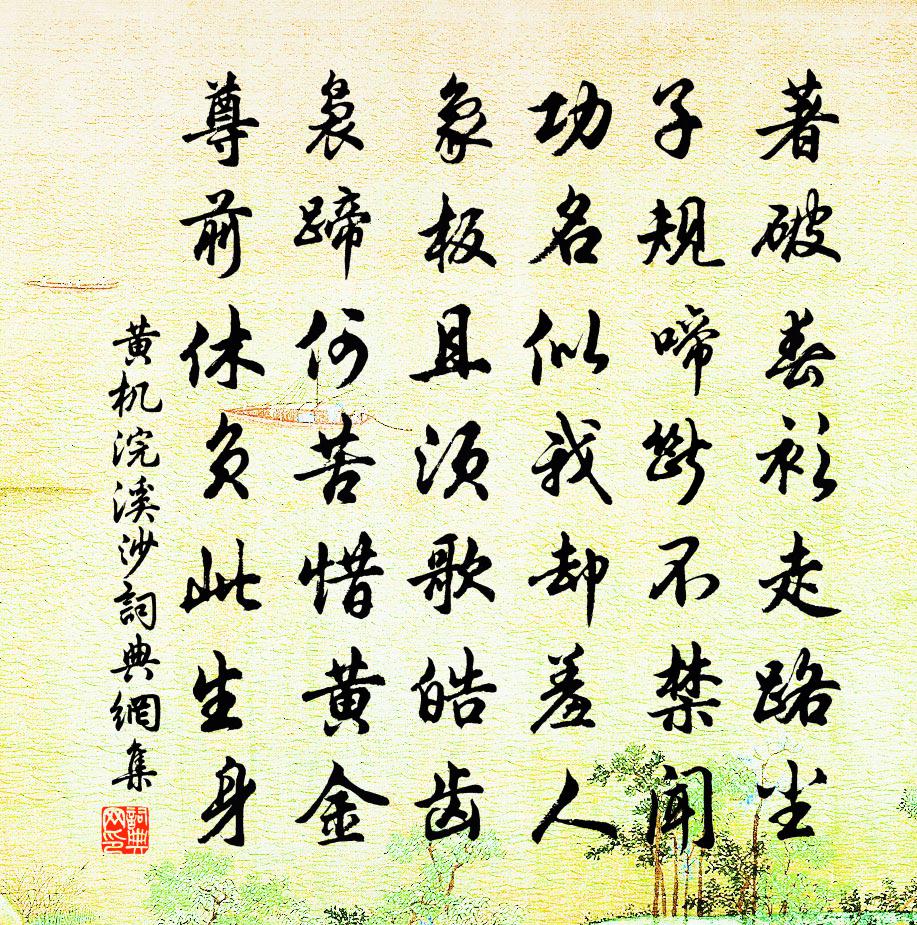 著破春衫走路尘
子规啼断不禁闻
功名似我却羞人
象板且须歌皓齿
袅蹄何苦惜黄金
尊前休负此生身
黄机浣溪沙詞典網集
詞典网印